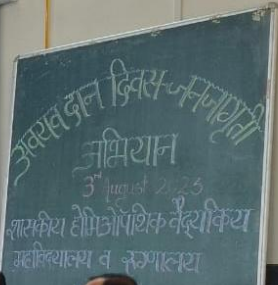 अवयव दान दिवस-जनजागृती
अभियान
3rd August 2023
शासकीय होमिओपॅथिक वैद्यकिय
महाविद्यालय व रुग्णालय